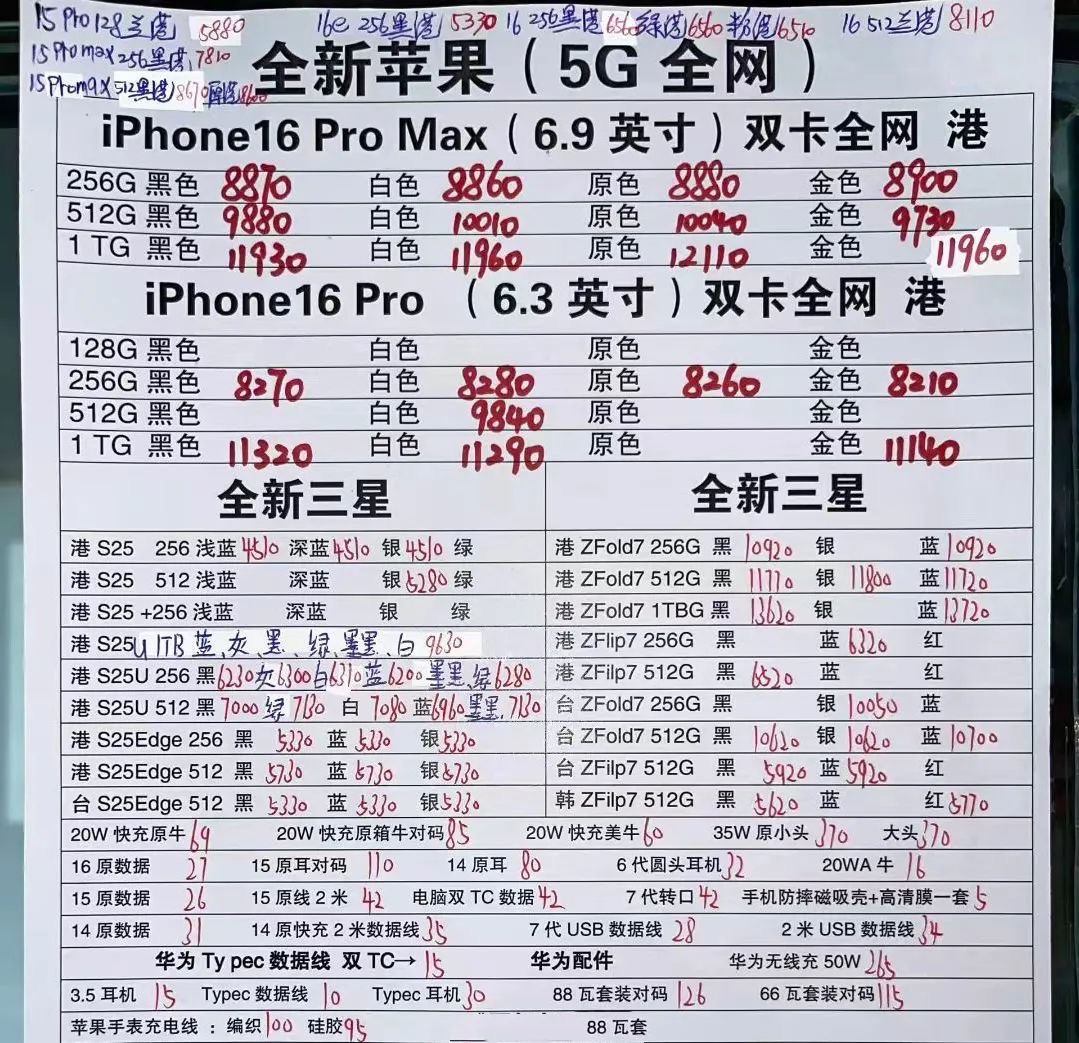 15 Pro 128兰港 5880 16e 256黑港/5330 16 256黑港/6560绿港/6560粉港/6510 16 512兰港/8110
15 Promax 256黑港,7810
15 Promax 512黑港/8670原港/8600
全新苹果（5G 全网）
iPhone16 Pro Max（6.9 英寸）双卡全网 港
256G 黑色 8870 白色 8860 原色 8880 金色 8900
512G 黑色 9880 白色 10010 原色 10040 金色 9730
1 TG 黑色 11930 白色 11960 原色 12110 金色 11960
iPhone16 Pro （6.3 英寸）双卡全网 港
128G 黑色 白色 原色 金色
256G 黑色 8270 白色 8280 原色 8260 金色 8210
512G 黑色 白色 9840 原色 金色
1 TG 黑色 11320 白色 11290 原色 金色 11140
全新三星 全新三星
港 S25 256 浅蓝 4510 深蓝 4510 银 4510 绿 港 ZFold7 256G 黑 10920 银 蓝 10920
港 S25 512 浅蓝 深蓝 银 5280 绿 港 ZFold7 512G 黑 11770 银 11800 蓝 11720
港 S25 +256 浅蓝 深蓝 银 绿 港 ZFold7 1TBG 黑 13620 银 蓝 13720
港 S25U 1TB 蓝、灰、黑、绿、墨黑、白 9630 港 ZFlip7 256G 黑 蓝 6320 红
港 S25U 256 黑 6230 灰 6300 白 6310 蓝 6200 墨黑、绿 6280 港 ZFilp7 512G 黑 6520 蓝 红
港 S25U 512 黑 7000 绿 7130 白 7080 蓝 6960 墨黑、7130 台 ZFold7 256G 黑 银 10050 蓝
港 S25Edge 256 黑 5330 蓝 5330 银 5330 台 ZFold7 512G 黑 10620 银 10620 蓝 10700
港 S25Edge 512 黑 5730 蓝 5730 银 5730 台 ZFilp7 512G 黑 5920 蓝 5920 红
台 S25Edge 512 黑 5330 蓝 5330 银 5330 韩 ZFilp7 512G 黑 5620 蓝 红 5770
20W 快充原牛 69 20W 快充原箱牛对码 85 20W 快充美牛 60 35W 原小头 370 大头 370
16 原数据 27 15 原耳对码 110 14 原耳 80 6 代圆头耳机 32 20WA 牛 16
15 原数据 26 15 原线 2 米 42 电脑双 TC 数据 42 7 代转口 42 手机防摔磁吸壳+高清膜一套 5
14 原数据 31 14 原快充 2 米数据线 35 7 代 USB 数据线 28 2 米 USB 数据线 34
华为 Ty pec 数据线 双 TC→ 15 华为配件 华为无线充 50W 265
3.5 耳机 15 Typec 数据线 10 Typec 耳机 30 88 瓦套装对码 126 66 瓦套装对码 115
苹果手表充电线 : 编织 100 硅胶 95 88 瓦套